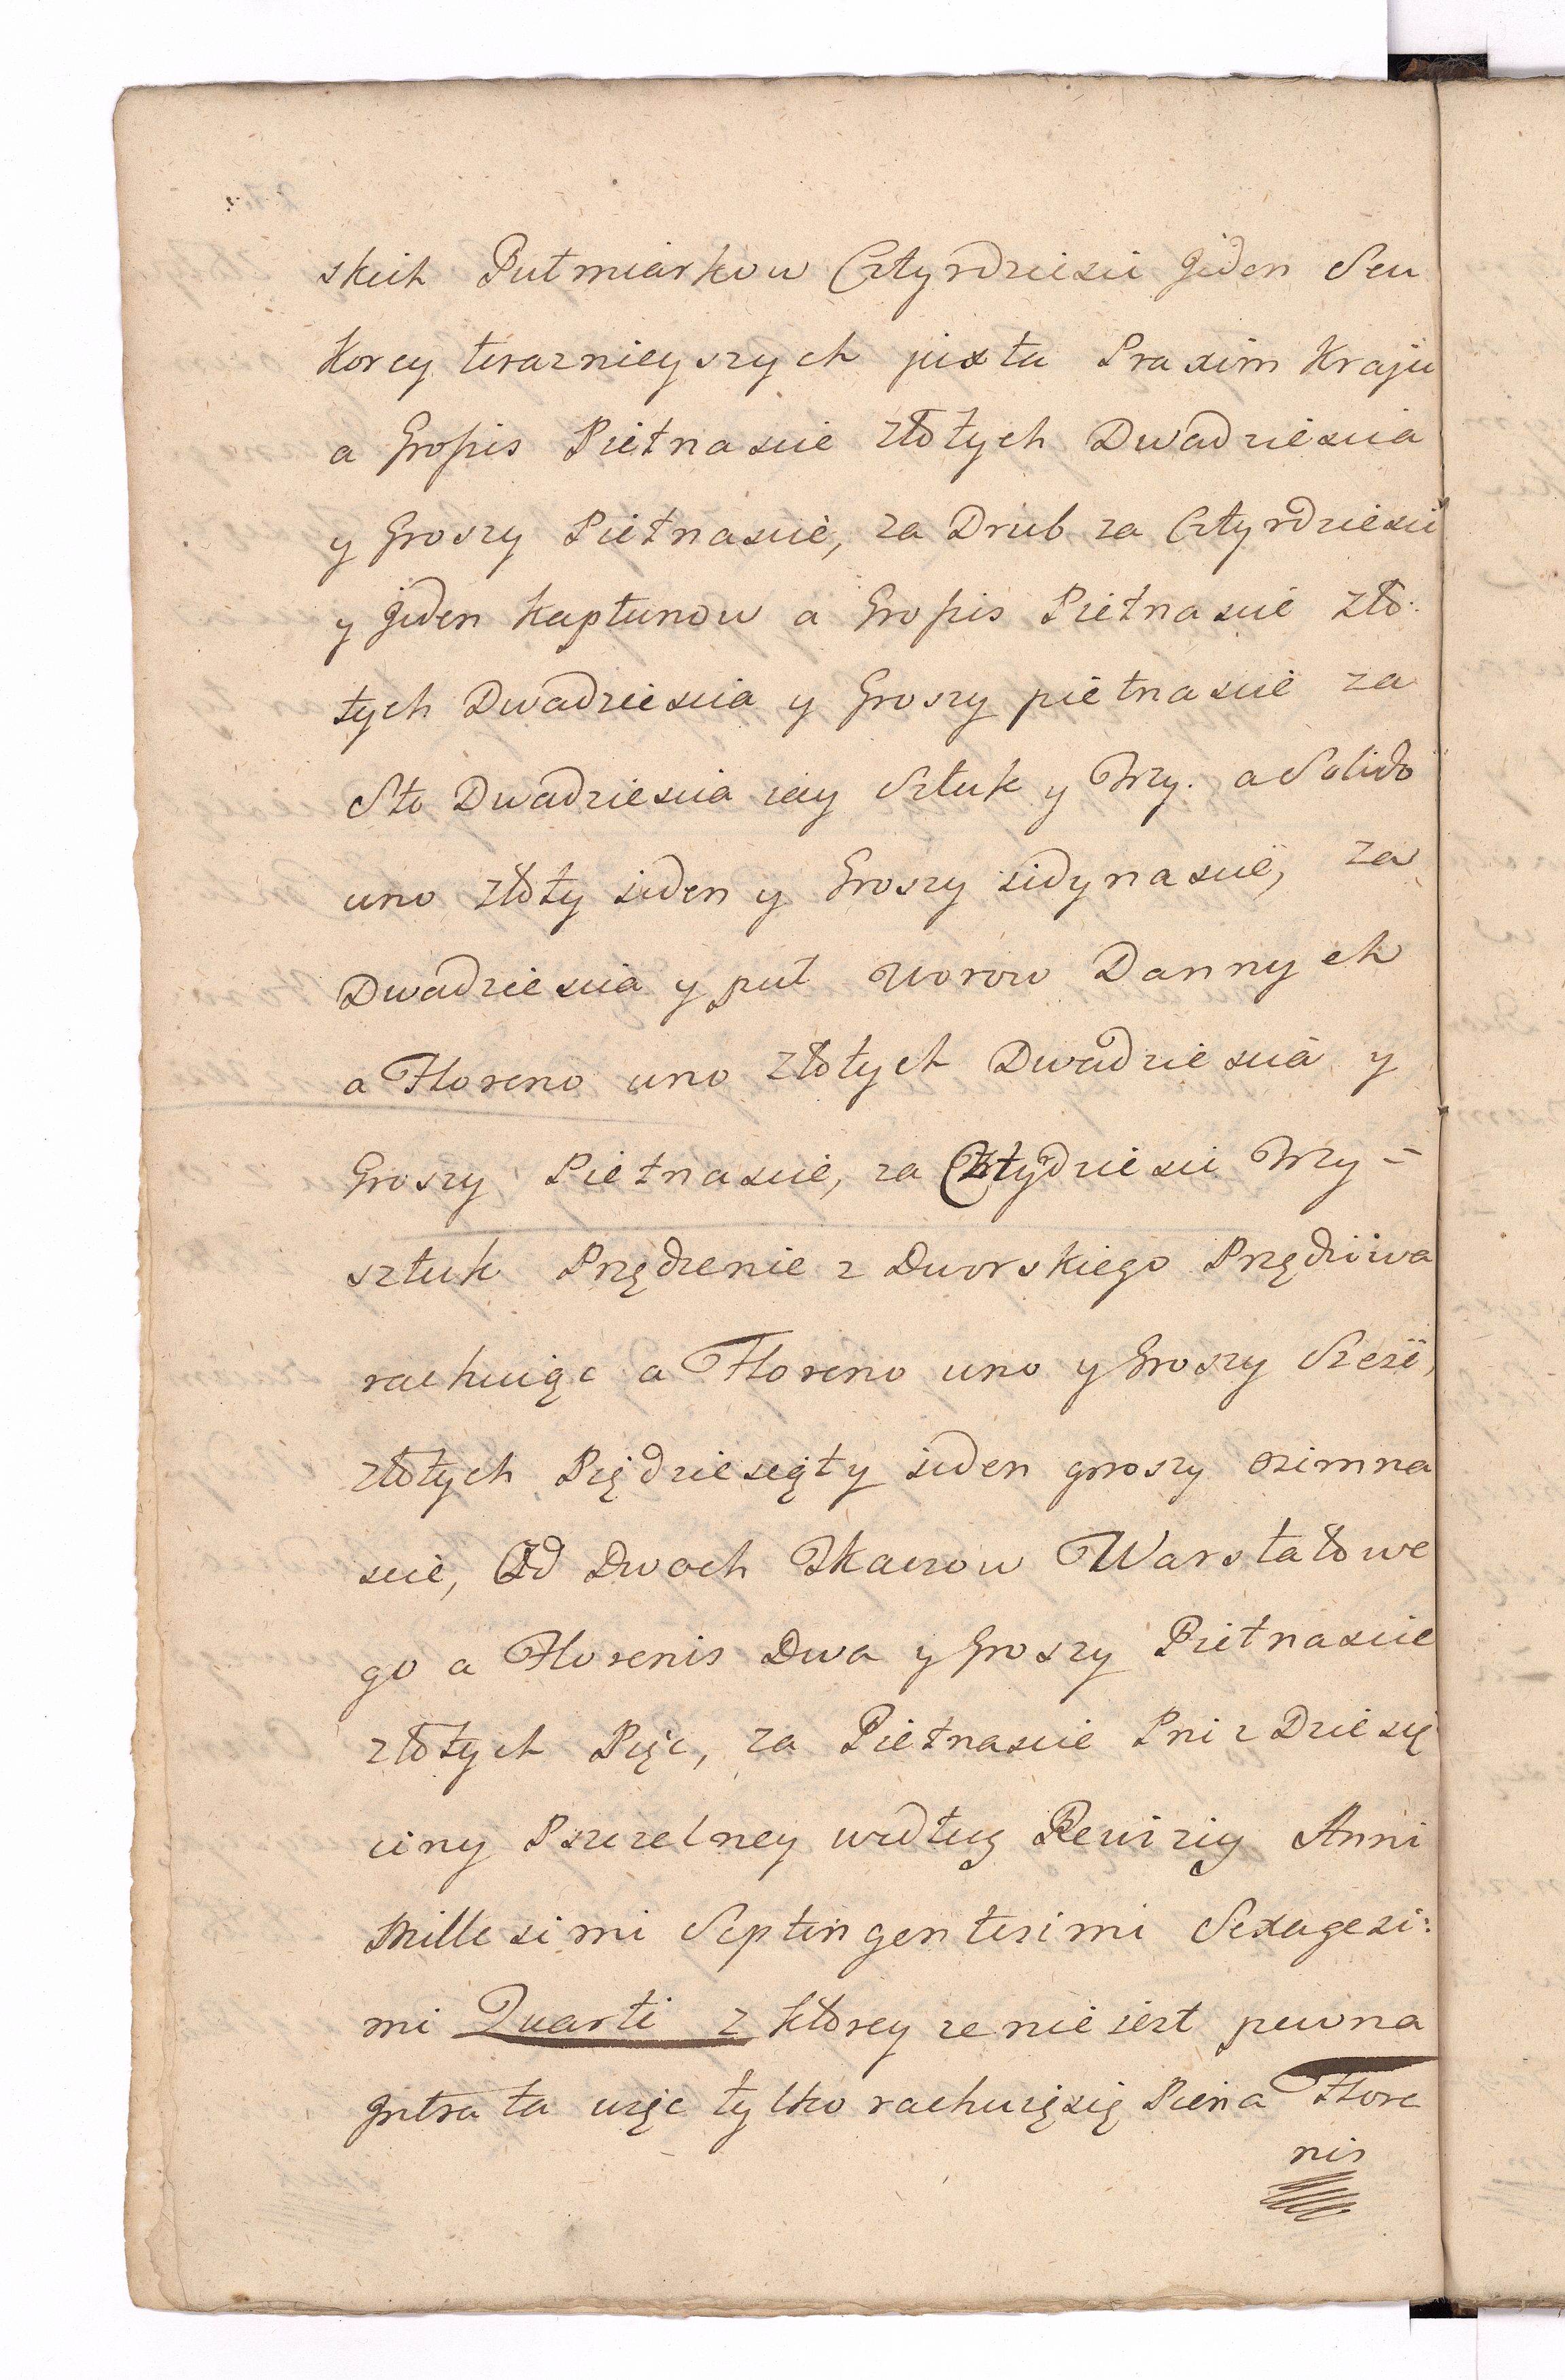 skich Putmiarkow Cztyrdziesci Jeden Seu
Korcy teraznieyszych juxta Praxim Kraju
a Grossis Pietnascie złotych Dwadziescia
y Groszy Pietnascie, za Drub za Cztyrdziesci
y Jeden Kapłunow a Grossis Pietnascie zło:
tych Dwadziescia y Groszy pietnascie za
Sto Dwadziescia iaiy Sztuk y Trzy. a Solido
uno złoty ieden y Groszy iedynascie, za
Dwadziescia y puł Worow Dannych
a Floreno uno złotych Dwadziescia y
Groszy Pietnascie, za Cztydziesci Trzy =
sztuk Przędzenie z Dworskiego Przędziwa
rachuiąc a Floreno uno y Groszy Szesc,
złotych Pięдziesiąty ieden groszy osimna
scie, Od Dwoch Tkaczow Warstatowe
go a Florenis Dwa y Groszy Pietnascie
złotych Pięc, za Pietnascie Pni z Dziesię
ciny Pszczelney według Rewiziy Anni
Millesimi Septingentesimi Sexagesi:
mi Quarti z ktorey ze nie iest pewna
Jntrata więc tylko rachuię się Pien a Flore
nis